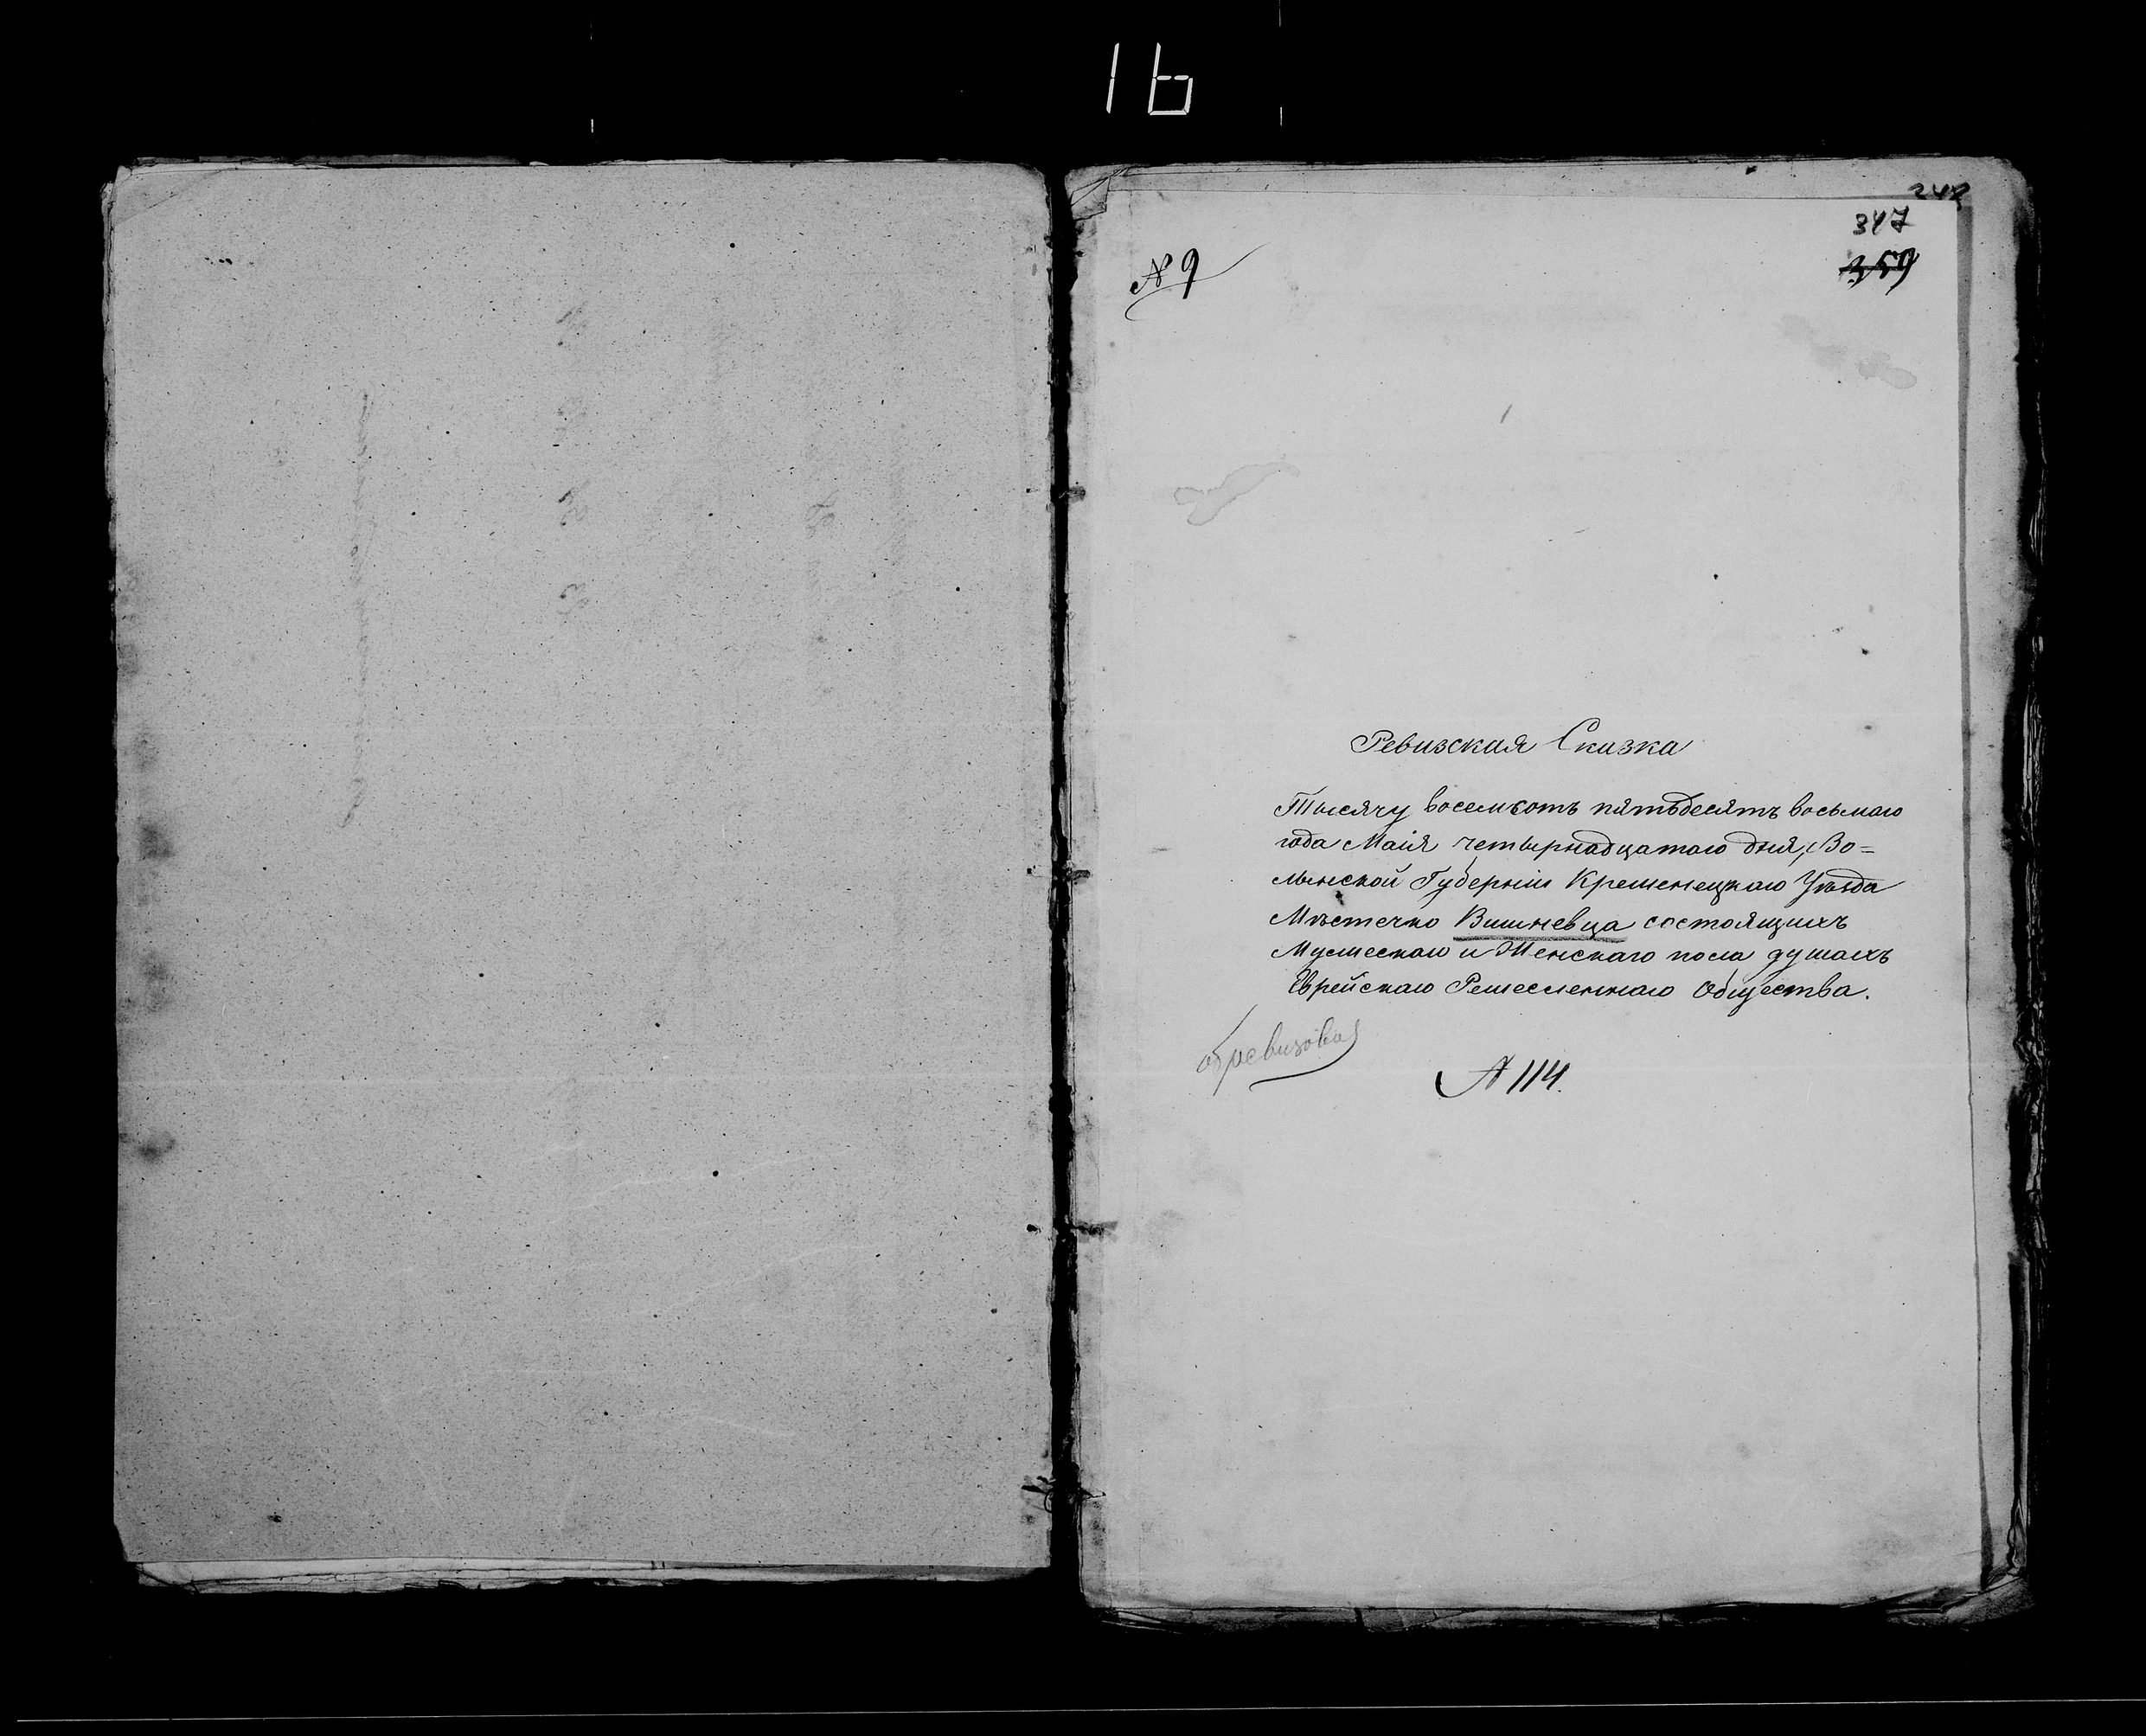 16
248
347
359
№ 9
Ревизская Сказка
Тысячу восемьсотъ пятьдесятъ восьмаго
года Маія четырнадцатаго дня, Во=
лынской Губерніи Кременецкаго Уѣзда
Мѣстечко Вишневца состоящихъ
Мужескаго и Женскаго пола душахъ
Еврейскаго Ремесленнаго Общества.
обревизова
№ 114.